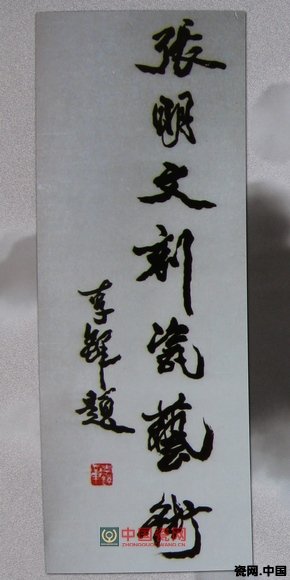 張明文刻瓷藝術
李鐸題
中国瓷网
ZHONGGUOCIWANG.CN
瓷网.中国